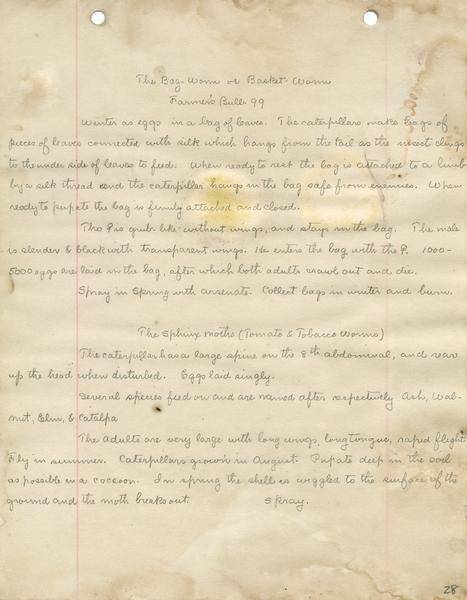 The Bag-Worm or Basket-Worm
Farmer's Bull. 99
Winter as eggs in a bag of leaves. The caterpillars make bags of
pieces of leaves connected with silk which hangs from the tail as the insect clings
to the under side of leaves to feed. When ready to rest the bag is attached to a limb
by a silk thread and the caterpillar hangs in the bag safe from enemies. When
ready to pupate the bag is firmly attached and closed.
The ♀ is grub like without wings, and stays in the bag. The male
is slender & black with transparent wings. He enters the bag with the ♀. 1000-
5000 eggs are laid in the bag, after which both adults crawl out and die.
Spray in Spring with arsenate. Collect bags in winter and burn.
The Sphinx moths (Tomato & Tobacco Worms)
The caterpillar has a large spine on the 8th abdominal, and rear
up the head when disturbed. Eggs laid singly.
Several species feed on and are named after respectively Ash, Wal-
nut, Elm, & Catalpa
The adults are very large with long wings, long tongue, rapid flight.
Fly in summer. Caterpillars grown in August. Pupate deep in the soil
as possible in a cocoon. In spring the shell is wiggled to the surface of the
ground and the moth breaks out. Spray.
28